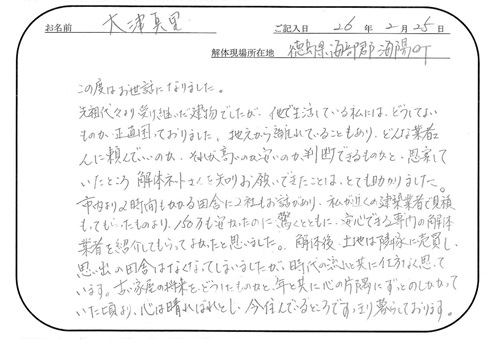 お名前 大津真里 ご記入日 26年2月25日
解体現場所在地 徳島県海部郡海陽町
この度はお世話になりました。
先祖代々より受け継いだ建物でしたが、他で生活している私には、どうしてよい
ものか、正直困っておりました。地元から離れていることもあり、どんな業者さ
んに頼んでいいのか、それが高いのか安いのか判断できるものかと、思案して
いたところ 解体ネットさんを知りお願いできたことは、とても助かりました。
市内より2時間もかかる田舎に2社もお話があり、私が近くの建築業者で見積
もってもらったものより、150万も安かったのに驚くとともに、安心できる専門の解体
業者を紹介してもらってよかったと思いました。解体後、土地は隣家に売買し、
思い出の田舎はなくなってしまいましたが、時代の流れと共に仕方なく思って
います。古い家屋の将来をどうしたものかと、年と共に心の片隅にずっとのしかかって
いた頃より、心は晴ればれとし、今住んでいるところですっきり暮らしております。